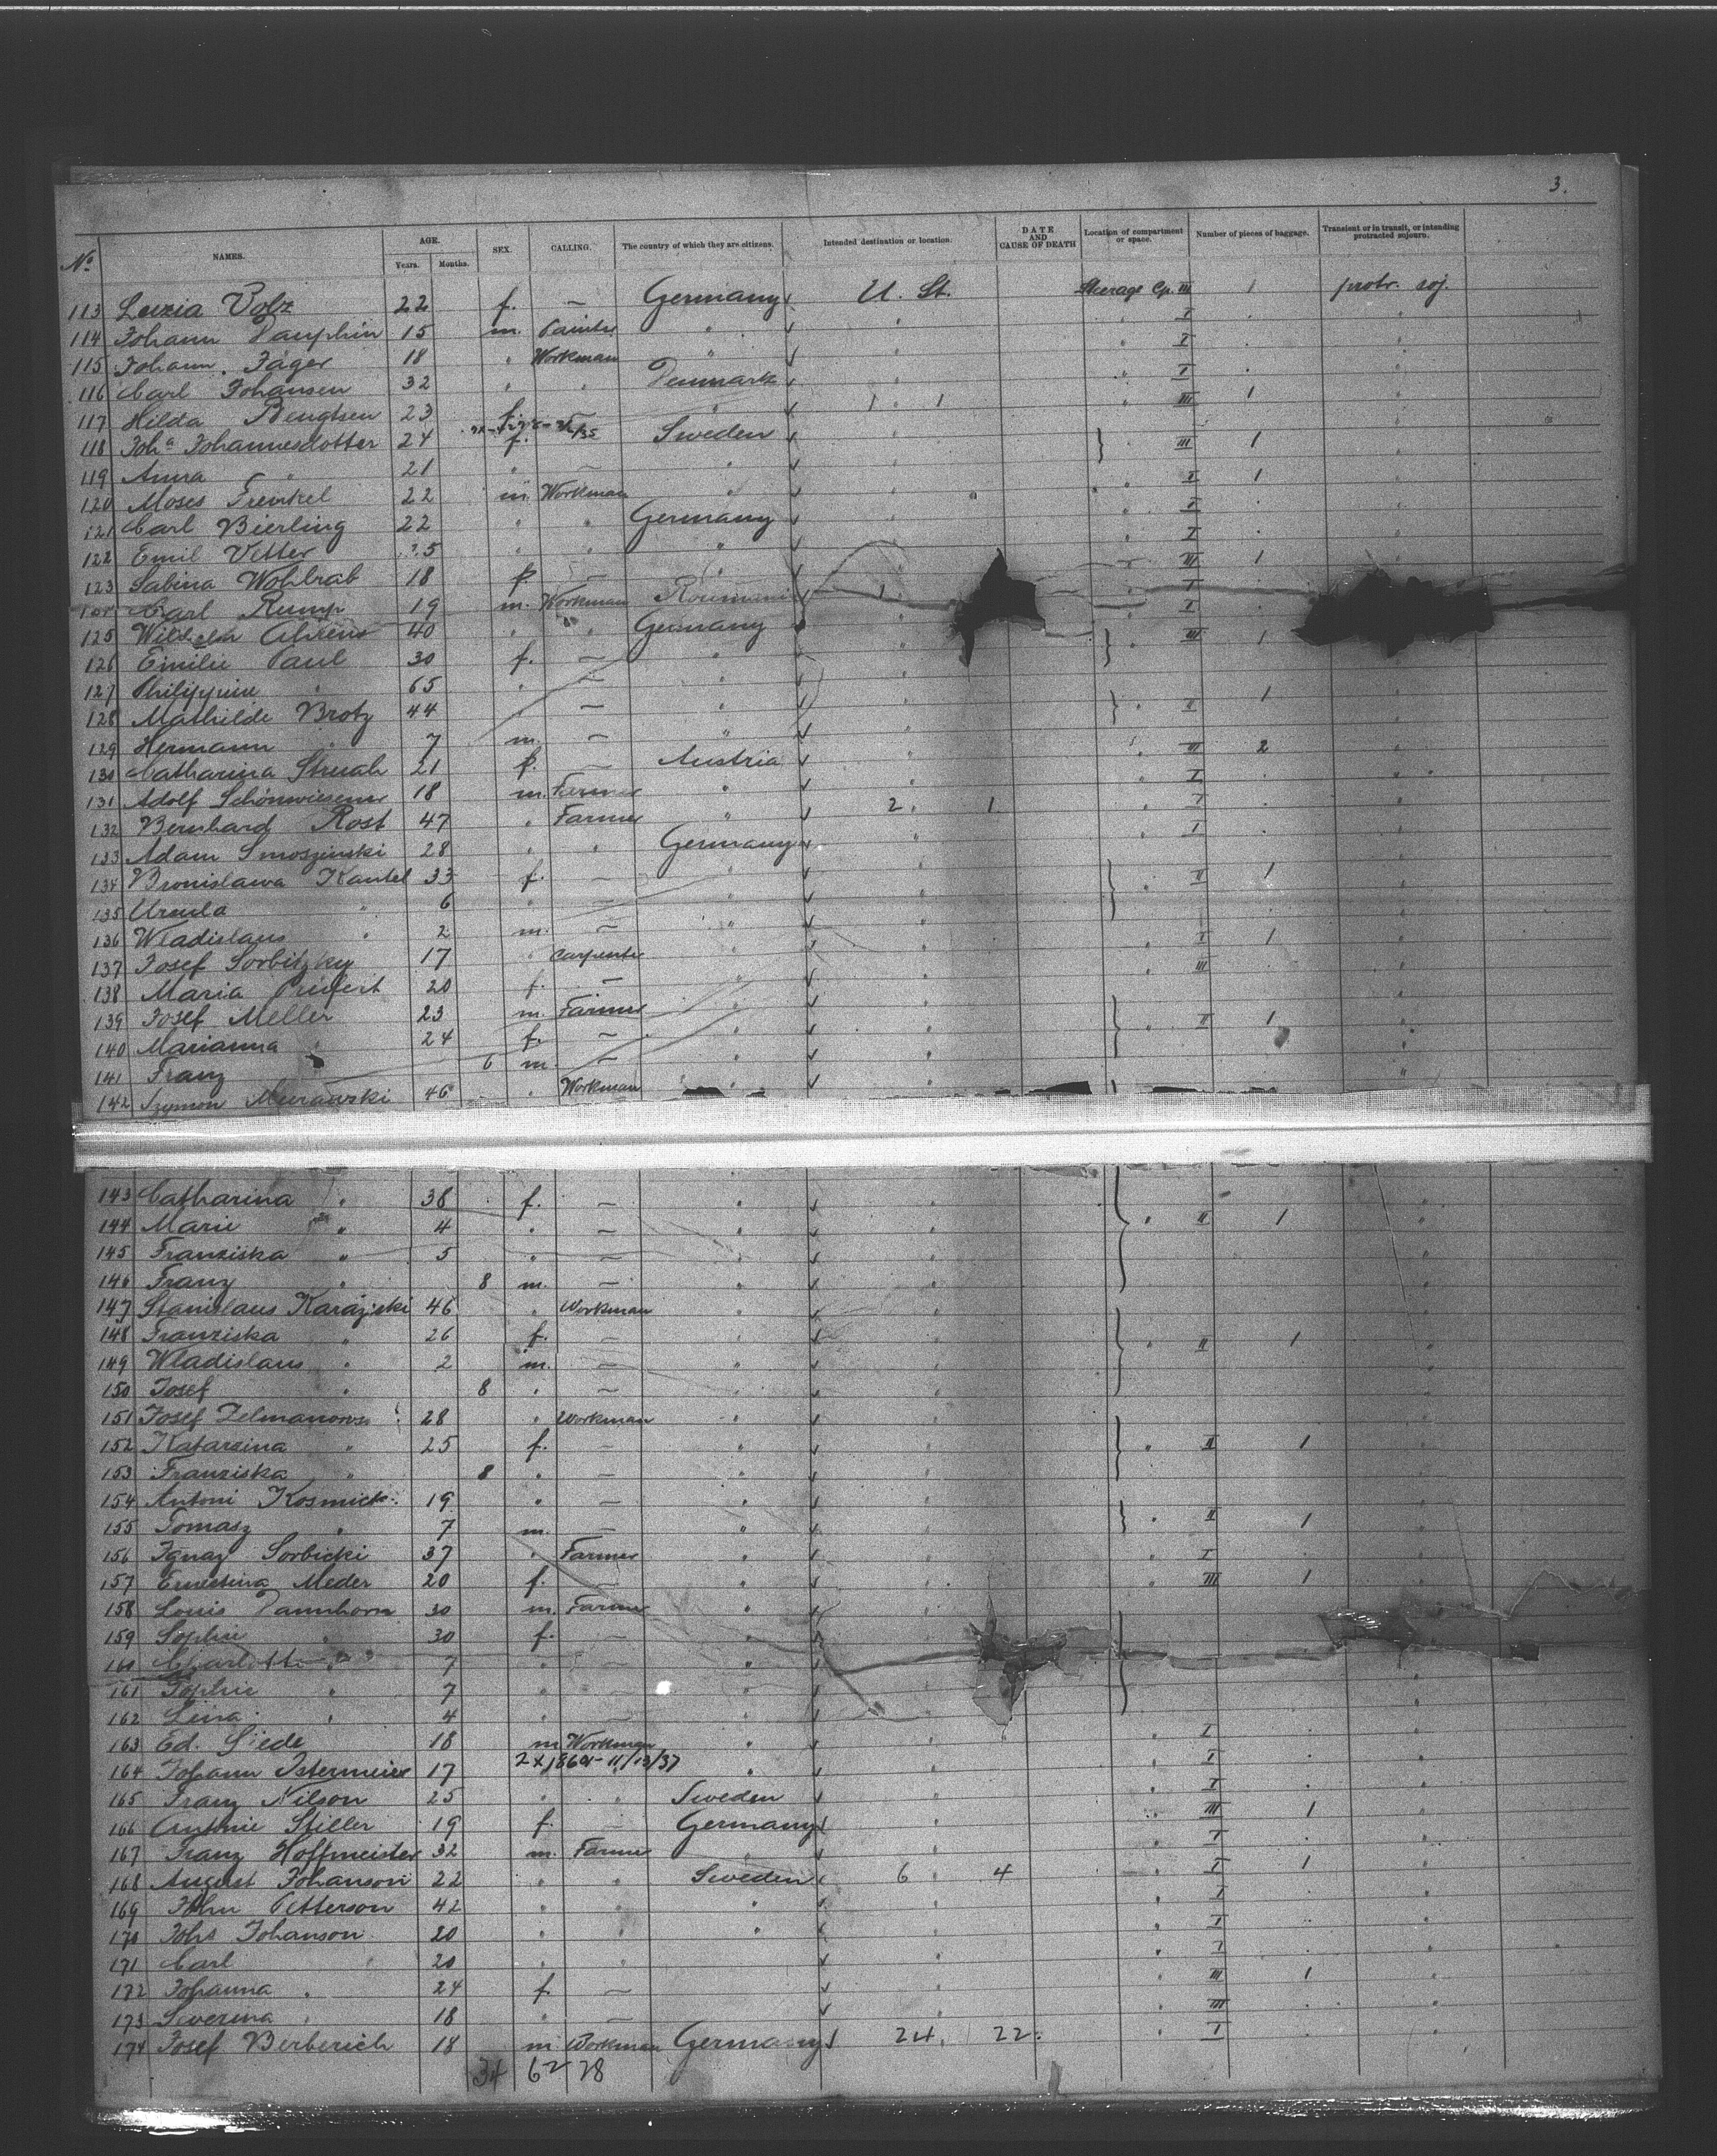 3.
No. NAMES. AGE. Years. Months. SEX. CALLING. The country of which they are citizens. Intended destination or location. DATE AND CAUSE OF DEATH Location of compartment or space. Number of pieces of baggage. Transient or in transit, or intending protracted sojourn.
113 Luzia Volz 22 f. — Germany U. St. Steerage Cp. III 1 protr. soj.
114 Johann Dauphin 15 m. Painter " " " I "
115 Johann Jäger 18 " Workman " " " I "
116 Carl Johansen 32 " " Denmark " " I "
117 Hilda Bengtsen 23 f. — " 1 1 " III 1 "
118 Joha Johannesdotter 24 f. Sweden " } " III 1
119 Anna " 21 " — " "
120 Moses Frenkel 22 m. Workman " " " I 1 "
121 Carl Bierling 22 " " Germany " " I "
122 Emil Vetter 25 " " " " I "
123 Sabina Wohlrab 18 f. — " III 1
Carl Rump 19 m. Workman Roumania I
125 Wilhelm Ahrens 40 " " Germany " I
126 Emilie Paul 30 f. — " " } III 1
127 Philippine " 65 " — " "
128 Mathilde Brotz 44 " — " " } " II 1 "
129 Hermann " 7 m. — " "
130 Catharina Struah 21 f. — Austria " " III 2 "
131 Adolf Schönwiesener 18 m. Farmer " " " I "
132 Bernhard Rost 47 " Farmer " 2 1 " I "
133 Adam Smoszinski 28 " " Germany " " I "
134 Bronislawa Kantel 33 f. — " " } " II 1 "
135 Ursula " 6 " — " "
136 Wladislaus " 2 m. — " "
137 Josef Sorbitzky 17 " Carpenter " " " I 1 "
138 Maria Priefert 20 f. — " " " III "
139 Josef Meller 23 m. Farmer " " } " II 1 "
140 Marianna " 24 f. — " "
141 Franz 6 m. — " "
142 Szymon Murawski 46 " Workman "
143 Catharina " 38 f. — " " } "
144 Marie " 4 " — " " " II 1 "
145 Franziska " 5 " — " "
146 Franz " 8 m. — " "
147 Stanislaus Karajski 46 " Workman " " } "
148 Franziska " 26 f. — " " " II 1 "
149 Wladislaus " 2 m. — " "
150 Josef " 8 " — " "
151 Josef Zelmanows 28 " Workman " " } "
152 Katarzina " 25 f. — " " " II 1 "
153 Franziska " 8 " — " "
154 Antoni Kosmick 19 " — " } "
155 Tomasz " 7 m. — " " " II 1 "
156 Ignaz Sorbicki 37 " Farmer " " " I "
157 Ernestina Meder 20 f. — " " " III 1 "
158 Louis Dannhorn 30 m. Farmer " "
159 Sophie " 30 f. — " }
160 Charlotte " 7 " — "
161 Sophie " 7 " — " "
162 Lina " 4 " — " "
163 Ed. Siede 18 m Workman " " I "
164 Johann Istermeier 17 2x18601-11/13/37 " " " I "
165 Franz Nilson 25 " " Sweden " " I "
166 Antonie Stiller 19 f. — Germany " " III 1 "
167 Franz Hoffmeister 32 m. Farmer " " " I "
168 August Johanson 22 " " Sweden 6 4 " I 1 "
169 John Petterson 42 " " " " " I "
170 Johs Johanson 20 " " " " " I "
171 Carl " 20 " " " " I "
172 Johanna " 24 f. — " " III 1 "
173 Severina " 18 " — " " III "
174 Josef Berberich 18 m Workman Germany 24 22 " I "
34 62 28